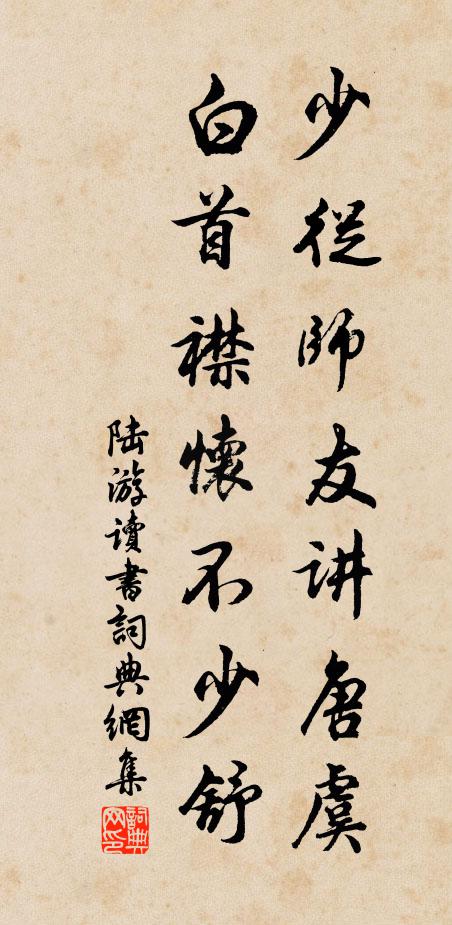 少從師友讲唐虞
白首襟懷不少舒
陆游讀書詞典網集
詞典网印